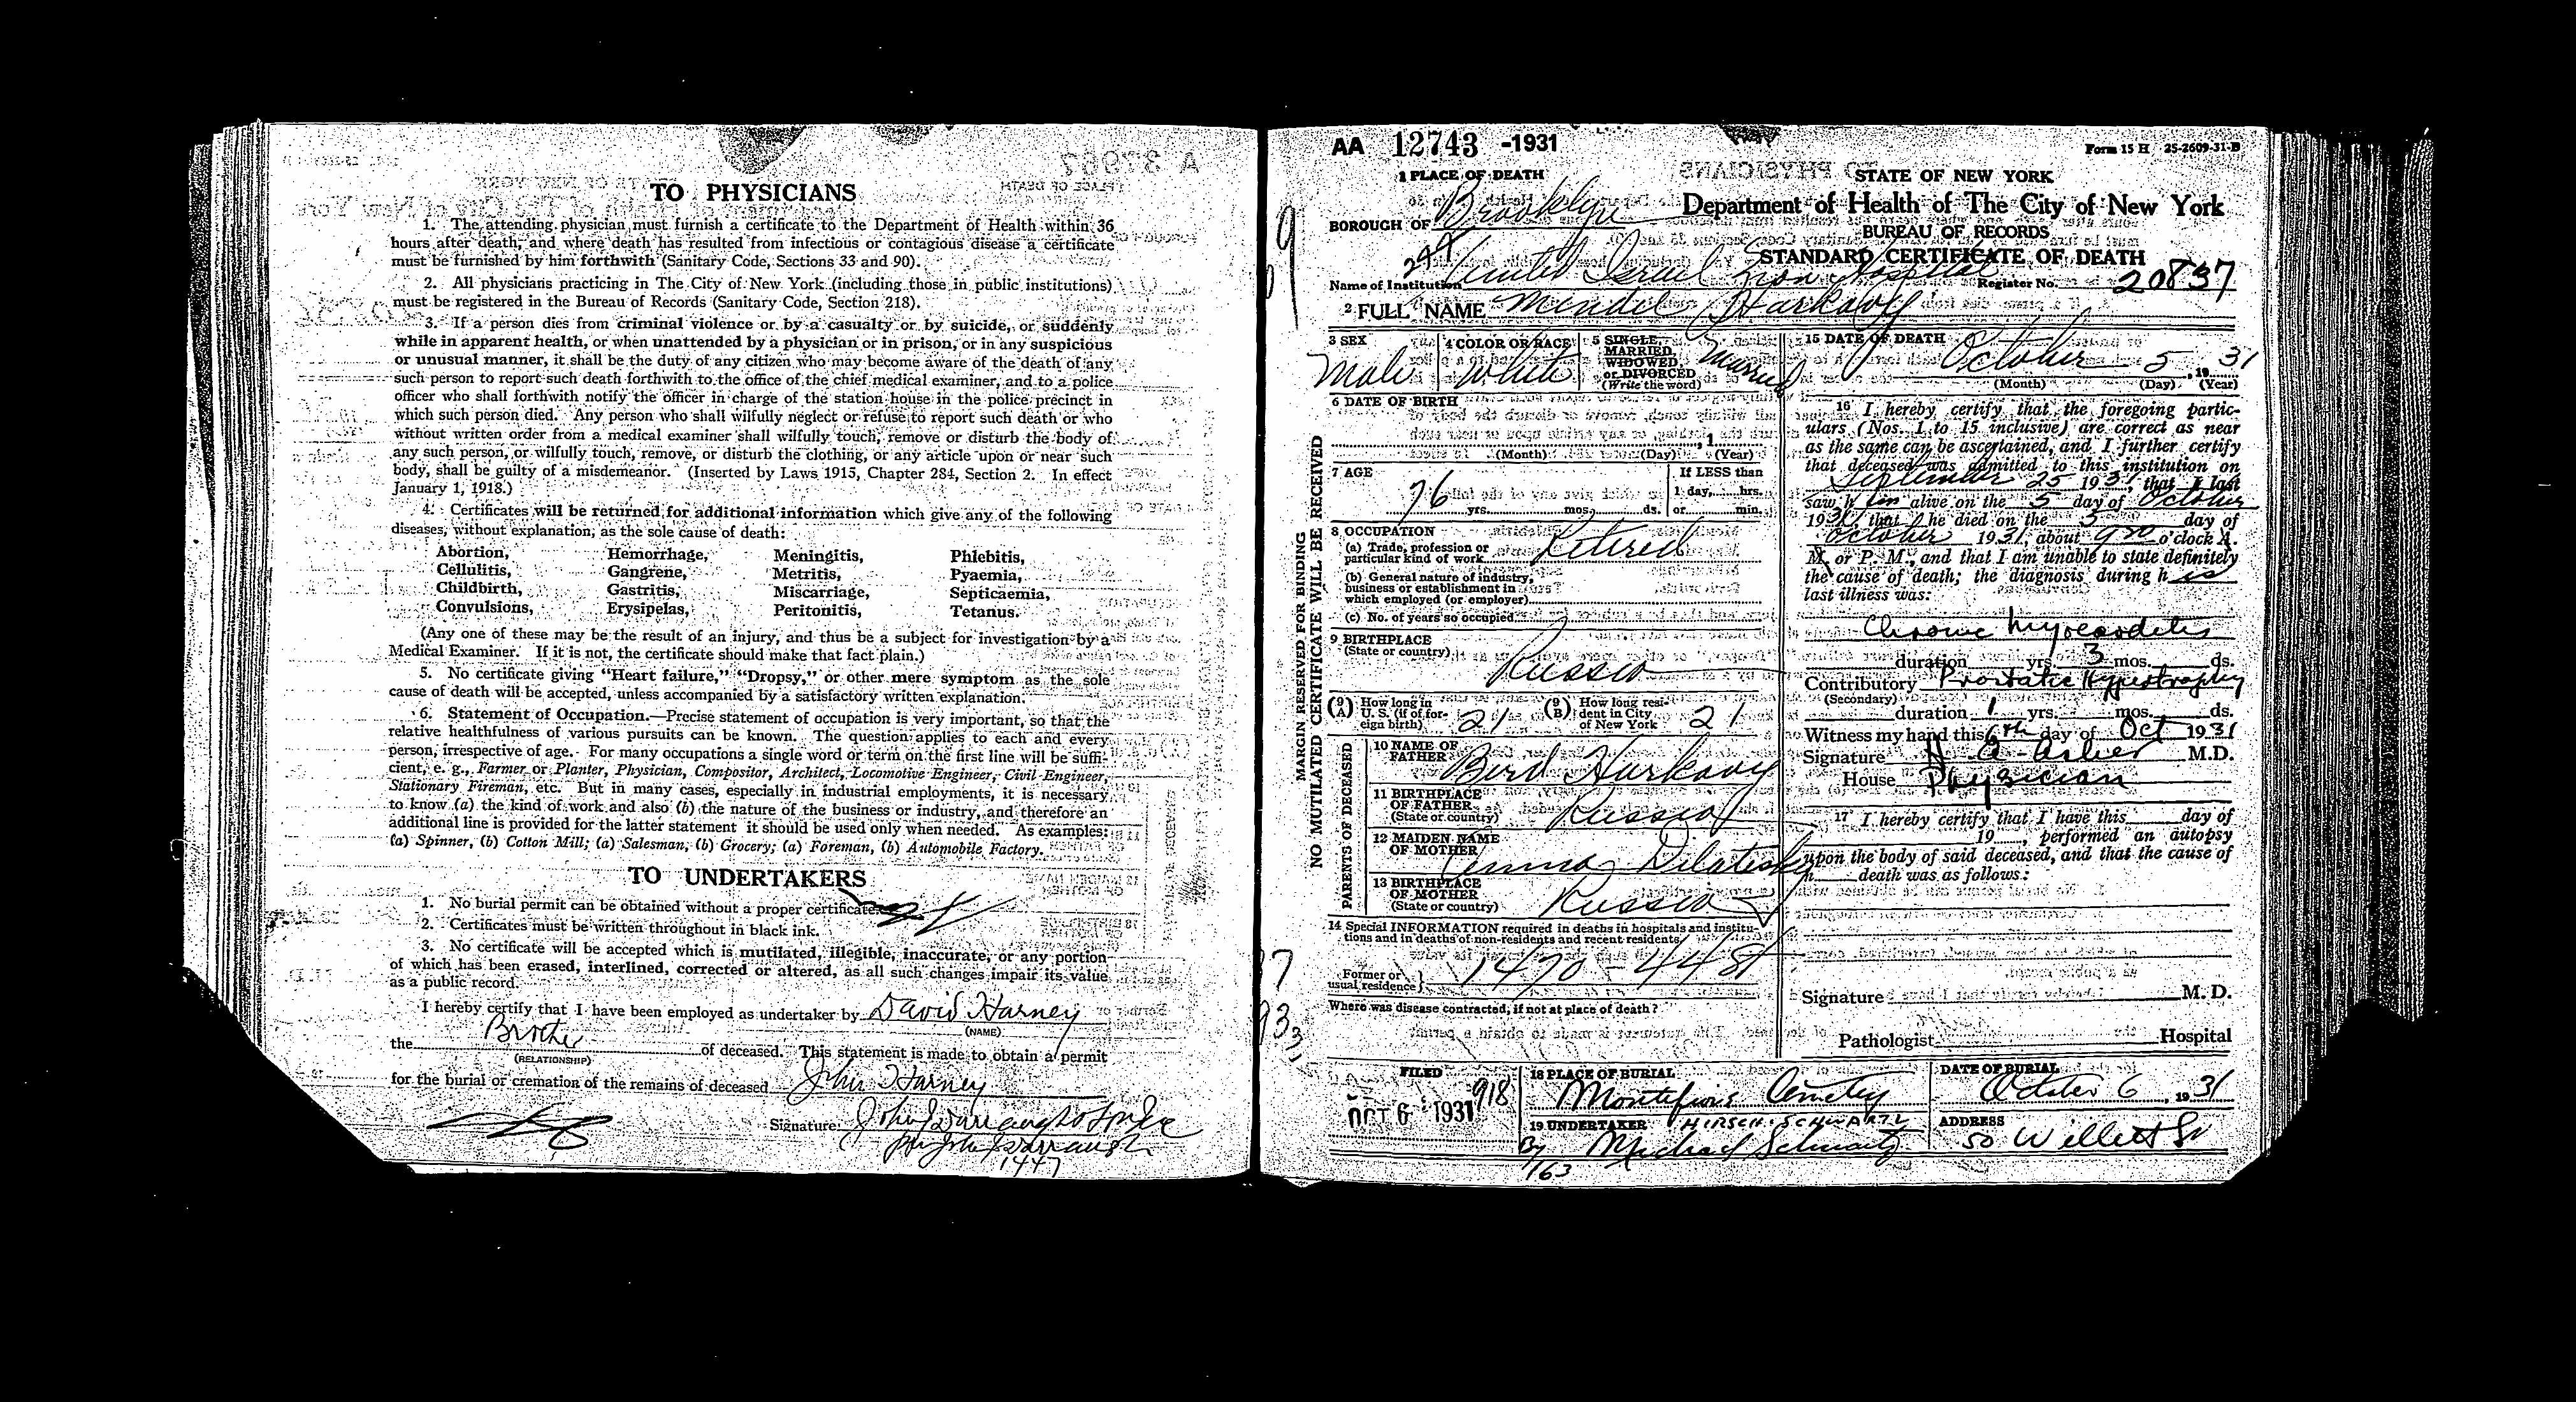 TO PHYSICIANS
1. The attending physician must furnish a certificate to the Department of Health within 36
hours after death, and where death has resulted from infectious or contagious disease a certificate
must be furnished by him forthwith (Sanitary Code, Sections 33 and 90).
2. All physicians practicing in The City of New York (including those in public institutions)
must be registered in the Bureau of Records (Sanitary Code, Section 218).
3. If a person dies from criminal violence or by a casualty or by suicide, or suddenly
while in apparent health, or when unattended by a physician or in prison, or in any suspicious
or unusual manner, it shall be the duty of any citizen who may become aware of the death of any
such person to report such death forthwith to the office of the chief medical examiner, and to a police
officer who shall forthwith notify the officer in charge of the station house in the police precinct in
which such person died. Any person who shall wilfully neglect or refuse to report such death or who
without written order from a medical examiner shall wilfully touch, remove or disturb the body of
any such person, or wilfully touch, remove, or disturb the clothing, or any article upon or near such
body, shall be guilty of a misdemeanor. (Inserted by Laws 1915, Chapter 284, Section 2. In effect
January 1, 1918.)
4. Certificates will be returned for additional information which give any of the following
diseases, without explanation, as the sole cause of death:
Abortion, Hemorrhage, Meningitis, Phlebitis,
Cellulitis, Gangrene, Metritis, Pyaemia,
Childbirth, Gastritis, Miscarriage, Septicaemia,
Convulsions, Erysipelas, Peritonitis, Tetanus.
(Any one of these may be the result of an injury, and thus be a subject for investigation by a
Medical Examiner. If it is not, the certificate should make that fact plain.)
5. No certificate giving “Heart failure,” “Dropsy,” or other mere symptom as the sole
cause of death will be accepted, unless accompanied by a satisfactory written explanation.
6. Statement of Occupation.—Precise statement of occupation is very important, so that the
relative healthfulness of various pursuits can be known. The question applies to each and every
person, irrespective of age. For many occupations a single word or term on the first line will be suffi-
cient, e. g., Farmer or Planter, Physician, Compositor, Architect, Locomotive Engineer, Civil Engineer,
Stationary Fireman, etc. But in many cases, especially in industrial employments, it is necessary
to know (a) the kind of work and also (b) the nature of the business or industry, and therefore an
additional line is provided for the latter statement it should be used only when needed. As examples:
(a) Spinner, (b) Cotton Mill; (a) Salesman, (b) Grocery; (a) Foreman, (b) Automobile Factory.
TO UNDERTAKERS
1. No burial permit can be obtained without a proper certificate.
2. Certificates must be written throughout in black ink.
3. No certificate will be accepted which is mutilated, illegible, inaccurate, or any portion
of which has been erased, interlined, corrected or altered, as all such changes impair its value
as a public record.
I hereby certify that I have been employed as undertaker by David Harney
(NAME)
the Brother of deceased. This statement is made to obtain a permit
(RELATIONSHIP)
for the burial or cremation of the remains of deceased John Harney
Signature
1447
AA 12743 -1931
Form 15 H 25-2609-31-B
1 PLACE OF DEATH
STATE OF NEW YORK
BOROUGH OF Brooklyn
Department of Health of The City of New York
BUREAU OF RECORDS
STANDARD CERTIFICATE OF DEATH
Name of Institution United Israel Zion Hospital
Register No. 20837
2 FULL NAME Mendel Harkavy
3 SEX Male
4 COLOR OR RACE White
5 SINGLE, MARRIED, WIDOWED or DIVORCED (Write the word) Married
6 DATE OF BIRTH
, 1
(Month) (Day) (Year)
7 AGE
76 yrs. mos. ds.
If LESS than
1 day, hrs.
or min.
8 OCCUPATION
(a) Trade, profession or
particular kind of work Retired
(b) General nature of industry,
business or establishment in
which employed (or employer)
(c) No. of years so occupied
9 BIRTHPLACE
(State or country) Russia
(9 A) How long in U. S. (if of for-eign birth) 21
(9 B) How long resi-dent in City of New York 21
PARENTS OF DECEASED
10 NAME OF
FATHER Berd Harkavy
11 BIRTHPLACE
OF FATHER
(State or country) Russia
12 MAIDEN NAME
OF MOTHER Anna Dilatisky
13 BIRTHPLACE
OF MOTHER
(State or country) Russia
14 Special INFORMATION required in deaths in hospitals and institu-
tions and in deaths of non-residents and recent residents.
Former or
usual residence 1470 - 44 St
Where was disease contracted, if not at place of death?
MARGIN RESERVED FOR BINDING
NO MUTILATED CERTIFICATE WILL BE RECEIVED
15 DATE OF DEATH October 5, 1931
(Month) (Day) (Year)
16 I hereby certify that the foregoing partic-
ulars (Nos. 1 to 15 inclusive) are correct as near
as the same can be ascertained, and I further certify
that deceased was admitted to this institution on
September 25 1931, that I last
saw him alive on the 5 day of October
1931, that he died on the 5 day of
October 1931, about 9 30 o'clock A.
M. or P. M., and that I am unable to state definitely
the cause of death; the diagnosis during his
last illness was:
Chronic Myocarditis
duration yrs. 3 mos. ds.
Contributory Prostatic Hypertrophy
(Secondary)
duration 1 yrs. mos. ds.
Witness my hand this 6th day of Oct 1931
Signature H A Asher M.D.
House Physician
17 I hereby certify that I have this day of
19 , performed an autopsy
upon the body of said deceased, and that the cause of
h death was as follows:
Signature M. D.
Pathologist Hospital
FILED
OCT 6 1931
918
18 PLACE OF BURIAL
Montefiore Cemetery
DATE OF BURIAL
October 6, 1931
19 UNDERTAKER HIRSCH SCHWARTZ
By Michael Schwartz
163
ADDRESS
50 Willett St